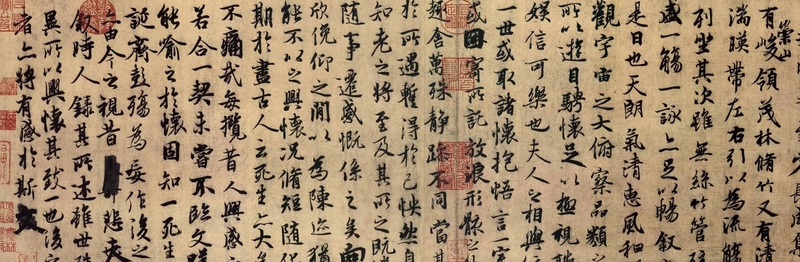 少長咸集
有崇山峻領茂林脩竹又有清
湍暎帶左右引以為流觴
列坐其次雖無絲竹管
盛一觴一詠亦足以暢敘
是日也天朗氣清惠風和
觀宇宙之大俯察品類之
所以遊目騁懷足以極視聽
娛信可樂也夫人之相與
一世或取諸懷抱悟言一室
或因寄所託放浪形骸之外
趣舍萬殊靜躁不同當其
於所遇暫得於己怏然自
知老之將至及其所之既惓
隨事遷感慨係之矣向
欣俛仰之閒以為陳迹猶
能不以之興懷況脩短隨化
期於盡古人云死生亦大矣
不痛哉每攬昔人興感之
若合一契未嘗不臨文嗟
能喻之於懷固知一死生
誕齊彭殤為妄作後之
亦由今之視昔悲夫
敘時人錄其所述雖世殊
異所以興懷其致一也後之
者亦將有感於斯文